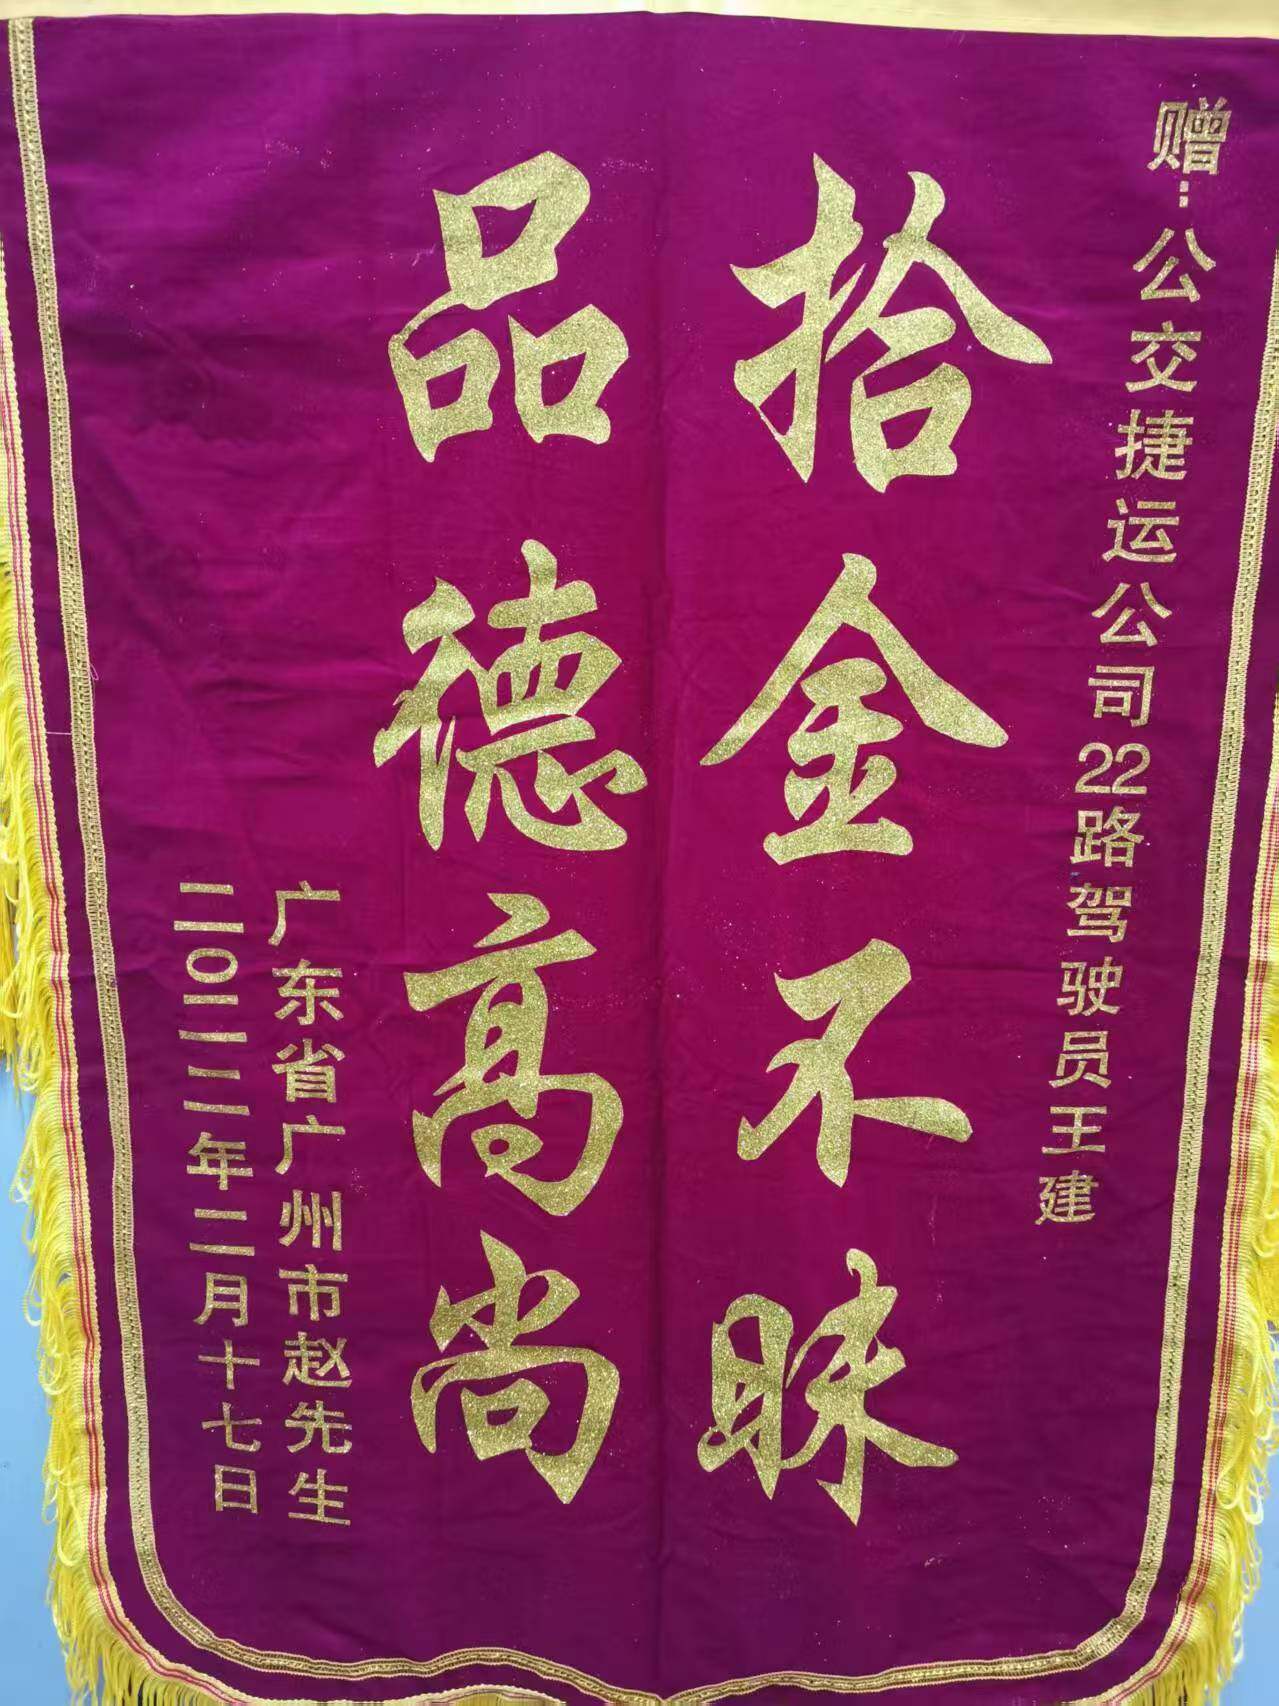 赠：公交捷运公司22路驾驶员王建
拾金不昧
品德高尚
广东省广州市赵先生
二〇二二年二月十七日